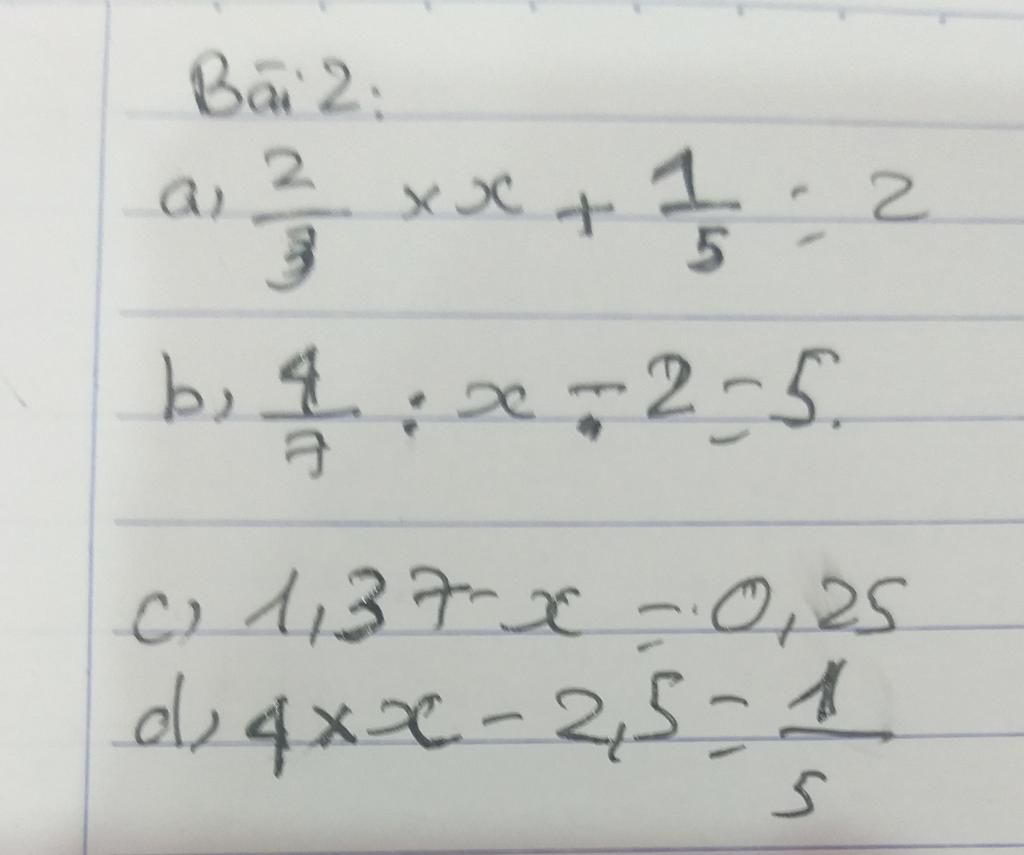 Bài 2:
a, 2/3 × x + 1/5 = 2
b, 4/7 : x - 2 = 5.
c, 1,37 - x = 0,25
d, 4 × x - 2,5 = 1/5